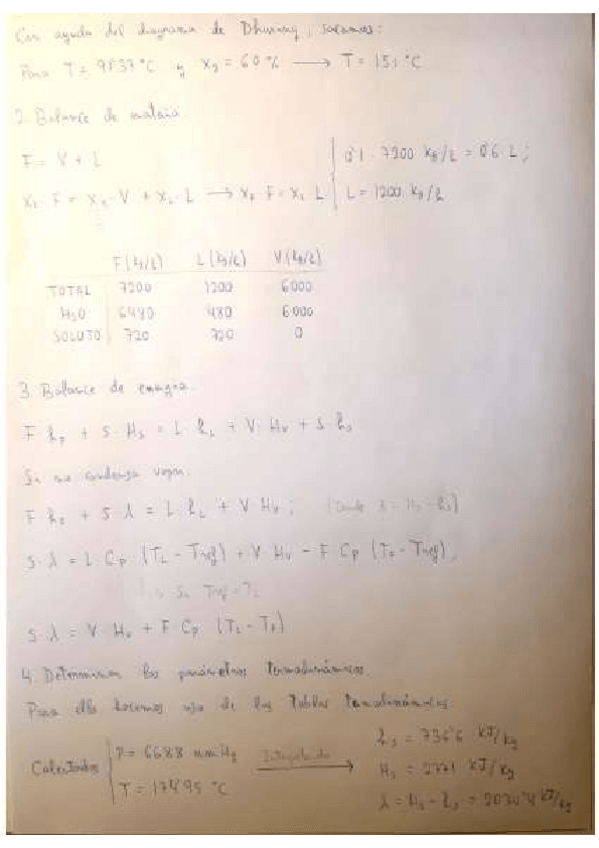 Con ayuda del diagrama de Dhuring, sacamos:
Para T = 98'37 °C y x_L = 60 % → T = 151 °C
2. Balance de materia.
F = V + L
0'1 · 7200 kg/h = 0'6 · L;
x_F · F = x_V · V + x_L · L → x_F · F = x_L · L
L = 1200 kg/h
F (kg/h) L (kg/h) V (kg/h)
TOTAL 7200 1200 6000
H₂O 6480 480 6000
SOLUTO 720 720 0
3. Balance de energía.
F · h_F + S · H_s = L · h_L + V · H_v + S · h_s
Si se condensa vapor.
F · h_F + S · λ = L · h_L + V · H_v; (Donde λ = H_s - h_s)
S · λ = L · Cp (T_L - Tref) + V · H_v - F · Cp (T_F - Tref);
Si Tref = T_L
S · λ = V · H_v + F · Cp (T_L - T_F)
4. Determinar los parámetros termodinámicos.
Para ello hacemos uso de las Tablas termodinámicas.
h_s = 736'6 kJ/kg
Calentador P = 6688 mmHg Interpolando → H_s = 2771 kJ/kg
T = 174'95 °C
λ = H_s - h_s = 2034'4 kJ/kg